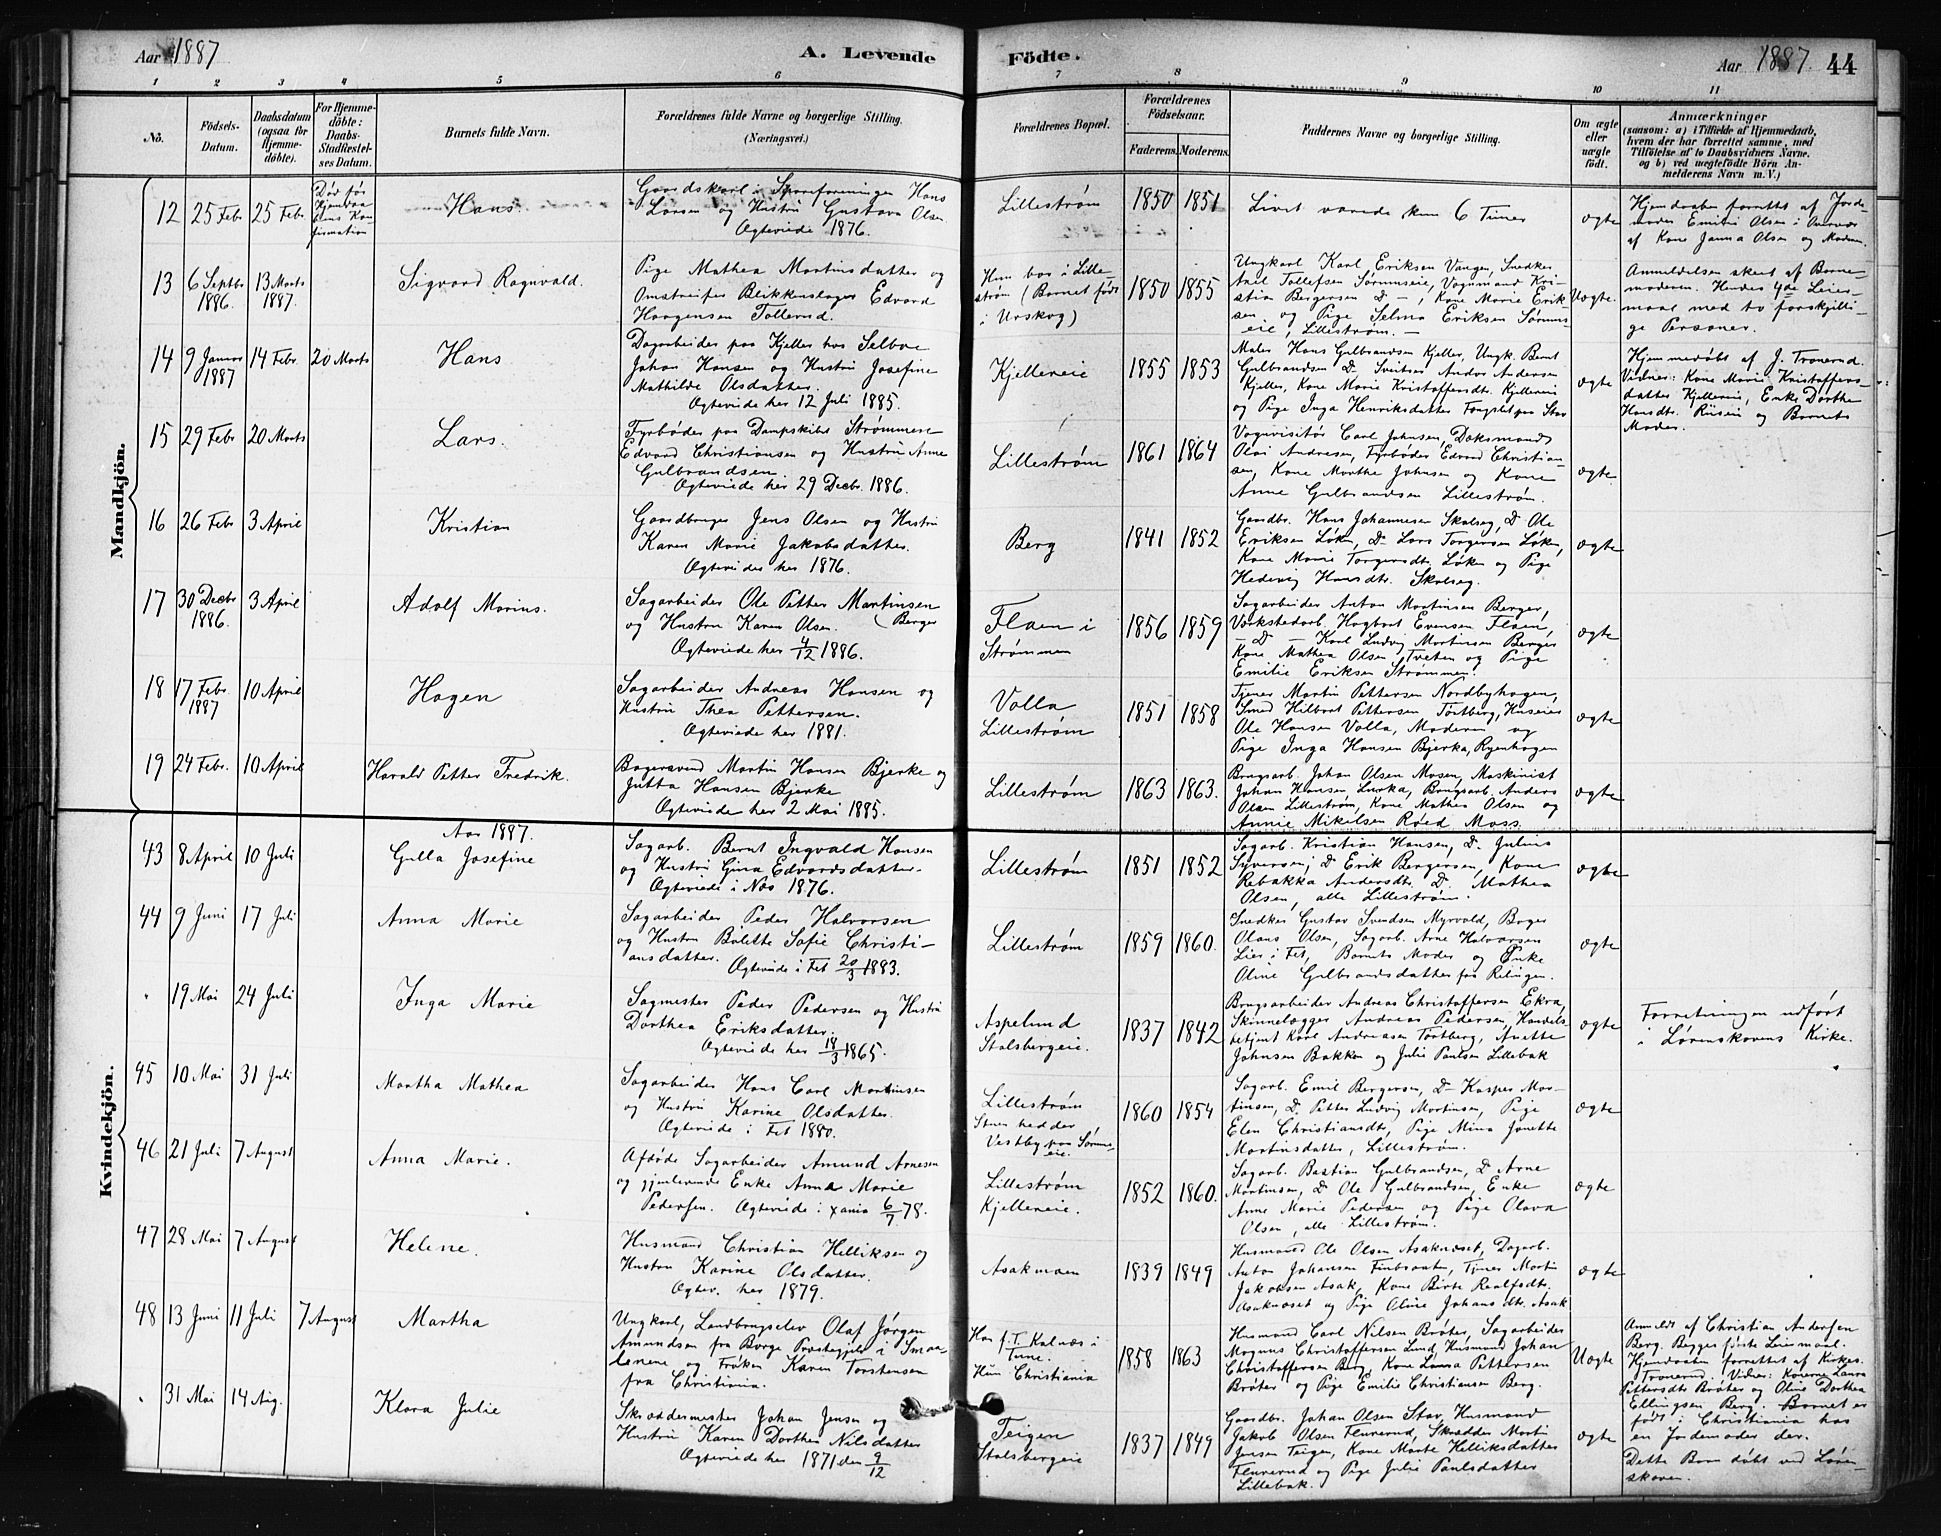 Aar 1887
A. Levende
Födte.
Aar 1887
44
1 2 3 4 5 6 7 8 9 10 11
No.
Födsels-Datum.
Daabsdatum (ogsaa for Hjemme-döbte).
For Hjemme-döbte: Daabs-Stadfæstel-ses Datum.
Barnets fulde Navn.
Forældrenes fulde Navne og borgerlige Stilling. (Næringsvei.)
Forældrenes Bopæl.
Forældrenes Födselsaar.
Faderens. Moderens.
Faddernes Navne og borgerlige Stilling.
Om ægte eller uægte födt.
Anmærkninger
(saasom: a) i Tilfælde af Hjemmedaab, hvem der har forrettet samme, med Tilföielse af to Daabsvidners Navne. og b) ved uægtefödte Börn An-melderens Navn m. V.)
Mandkjön.
12 25 Febr 25 Febr
Død før
Hans
Hans
Larsen og Hustru Gustava Olsen
Ægteviede 1876.
Lillestrøm
1850 1851
Livet varede kun 6 Timer
ægte
Hjemdaaben forrettet af Jorde-
moder Emilie Olsen i Overvær
af Kone Janna Olsen og Moderen.
13 6 Septbr 1886. 13 Marts 1887.
Sigvard Ragnvald.
Pige Mathea Martinsdatter og
Omstreifer Blikkenslager Edvard
Haagensen Tollerud.
Hun bor i Lille-
strøm (Barnet født
i Urskog)
1850 1855
Ungkarl Karl Eriksen Vangen, Snedker
Axel Tollefsen Sørumseie, Vognmand Kri-
stian Bergersen D - , Kone Marie Erik-
sen og Pige Selma Eriksen Sørums-
eie, Lillestrøm. -
Uægte.
Anmeldelsen skeet af Barne-
moderen. Hendes 4de Leier-
maal med to forskjelli-
ge Personer.
14 9 Januar 1887 14 Febr. 20 Marts
Hans
Dagarbeider paa Kjeller hos Selboe
Johan Hansen og Hustru Josefine
Mathilde Olsdatter.
Ægteviede her 12 Juli 1885.
Kjellereie
1855 1853
Maler Hans Gulbrandsen Kjeller, Ungk. Bernt
Gulbrandsen D. Sveitser Andor Andersen
Kjeller, Kone Marie Kristoffersdt. Kjellereie
og Pige Inga Henriksdatter
ægte
Hjemmedøbt af J. Tronerud.
Vidner: Kone Marie Kristoffers-
datter Kjellereie, Enke Dorthe
Hansdt. Riiseie og Barnets
Moder.
15 29 Febr 20 Marts
Lars.
Fyrbøder paa Dampskibet Strømmen
Edvard Christiansen og Hustru Anne
Gulbrandsen
Ægteviede her 29 Decbr. 1886.
Lillestrøm
1861 1864
Vognvisitør Carl Johnsen, Baksmand
Olai Andresen, Fyrbøder Edvard Christian-
sen, Kone Marthe Johnsen og Kone
Anne Gulbrandsen Lillestrøm.
ægte
16 26 Febr 3 April
Kristian
Gaardbruger Jens Olsen og Hustru
Karen Marie Jakobsdatter.
Ægteviede her 1876.
Berg
1841 1852
Gaardbr. Hans Johannesen Skolseg, D. Ole
Eriksen Løken, D- Lars Torgersen Løken,
Kone Marie Torgersdt. Løken og Pige
Hedevig Hansdt. Skolseg.
ægte
17 30 Decbr 1886. 3 April
Adolf Marius.
Sagarbeider Ole Petter Martinsen
og Hustru Karen Olsen. (Berger
Ægteviede her 4/12 1886.
Flaen i
Strømmen
1856 1859
Sagarbeider Anton Martinsen Berger,
Værkstedarb. Hagbart Evensen Flaen,
- D - Karl Ludvig Martinsen Berger
Kone Mathea Olsen Tveten og Pige
Emilie Eriksen Strømmen.
ægte
18 17 Febr. 1887 10 April
Hagen
Sagarbeider Andreas Hansen og
Hustru Thea Pettersen.
Ægteviede her 1881.
Volla
Lillestrøm
1851 1858
Tjener Martin Pettersen Nordbyhagen,
Smed Hilbart Pettersen Tortberg, Huseier
Ole Hansen Volla, Moderen og
Pige Inga Hansen Bjerka, Ryenhagen
ægte
19 24 Febr. 10 April
Harald Petter Fredrik.
Bagersvend Martin Hansen Bjerke og
Jutta Hansen Bjerke
Ægteviede her 2 Mai 1885.
Lillestrøm
1863 1863.
Brugsarb. Johan Olsen Mosen, Maskinist
Johan Hansen Lurka, Brugsarb. Anders
Olsen Lillestrøm, Kone Mathea Olsen og
Annie Mikelsen Røed Moss.
ægte
Kvindekjön.
Aar 1887.
43 8 April 10 Juli
Gulla Josefine
Sagarb. Bernt Ingvald Hansen
og Hustru Gina Edvardsdatter.
Ægteviede i Næs 1876.
Lillestrøm
1851 1852
Sagarb. Kristian Hansen, D. Julius
Syversen, D. Erik Bergersen, Kone
Rebakka Andersdt. D. Mathea
Olsen, alle Lillestrøm.
ægte
44 9 Juni 17 Juli
Anna Marie
Sagarbeider Peder Halvorsen
og Hustru Bolette Sofie Christi-
ansdatter.
Ægteviede i Fet 20/3 1883.
Lillestrøm
1859 1860.
Snedker Gustav Svendsen Myrvold, Bager
Olaus Olsen, Sagarb. Arne Halvorsen
Lier i Fet, Barnets Moder og Enke
Oline Gulbrandsdatter fra Relingen.
ægte
" 19 Mai 24 Juli
Inga Marie
Sagmester Peder Pedersen og Hustru
Dorthea Eriksdatter.
Ægteviede her 18/3 1865.
Aspelund
Stalsbergeie.
1837 1842
Brugsarbeider Andreas Christoffersen Ekra,
Skinnelægger Andreas Pedersen, Handels-
betjent Karl Andreasen Tortberg, Anette
Johnsen Bakken og Julie Paulsen Lillebak
ægte
Forretningen udført
i Lørenskovens Kirke.
45 10 Mai 31 Juli
Martha Mathea
Sagarbeider Hans Carl Martinsen
og Hustru Karine Olsdatter.
Ægteviede i Fet 1880.
Lillestrøm
Stuen hedder
Vestby paa Sørums-
eie.
1860 1854
Sagarb. Emil Bergersen, D- Kasper Mar-
tinsen, D. Petter Ludvig Martinsen, Pige
Elen Christiansdt, Pige Mina Janette
Martinsdatter, Lillestrøm.
ægte
46 21 Juli 7 August
Anna Marie.
Afdøde Sagarbeider Amund Arnesen
og gjenlevende Enke Anna Marie
Pedersen. Ægteviede i Xania 6/7 78.
Lillestrøm
Kjellereie.
1852 1860.
Sagarb. Bastian Gulbrandsen, D. Arne
Martinsen, D. Ole Gulbrandsen, Enke
Anne Marie Pedersen og Pige Olava
Olsen, alle Lillestrøm.
ægte
47 28 Mai 7 August
Helene.
Husmand Christian Helliksen og
Hustru Karine Olsdatter.
Ægtev. her 1879.
Asakmoen
1839 1849
Husmand Ole Olsen Asaknæset, Dagarb.
Anton Johansen Finbraaten, Tjener Martin
Jakobsen Asak, Kone Birte
Asaknæset og Pige Oline Johansdtr. Asak
ægte
48 13 Juni 11 Juli 7 August
Martha
Ungkarl, Landbrugselev Olaf Jørgen
Amundsen fra Borge Præstegjeld i Smaa-
lenene og Frøken Karen Torstensen
fra Christiania.
Han f. T. Kalnæs i
Tune.
Hun Christiania
1858 1863
Husmand Carl Nilsen Brøter, Sagarbeider
Magnus Christoffersen Lund, Husmand Johan
Christoffersen Berg, Kone Laura Pettersen
Brøter og Pige Emilie Christiansen Berg.
Uægte
Anmeldt af Christian Andersen
Berg. Begges første Leiermaal.
Hjemdaaben forrettet af Kirkes.
Tronerud. Vidner: Konerne Laura
Pettersdt Brøter og Oline Dorthea
Ellingsen Berg. Barnet er
født i Christiania hos
en Jordemoder der.
" 31 Mai 14 Aug.
Klara Julie
Skræddermester Johan Jensen og
Hustru Karen Dorthea Nilsdatter
Ægteviede her 1871 den 9/12
Teigen
Stalsbergeie
1837 1849
Gaardbr. Johan Olsen Stav, Husmand
Jakob Olsen Flurerud, Skrædder Martin
Jensen Teigen, Kone Marte Helliksdatter
Flurerud og Pige Julie Paulsdatter
Lillebak.
ægte
Dette Barn døbt ved Løren-
skoven.